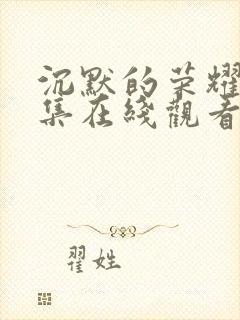 沉默的荣耀
集在綫觀看
翟姓